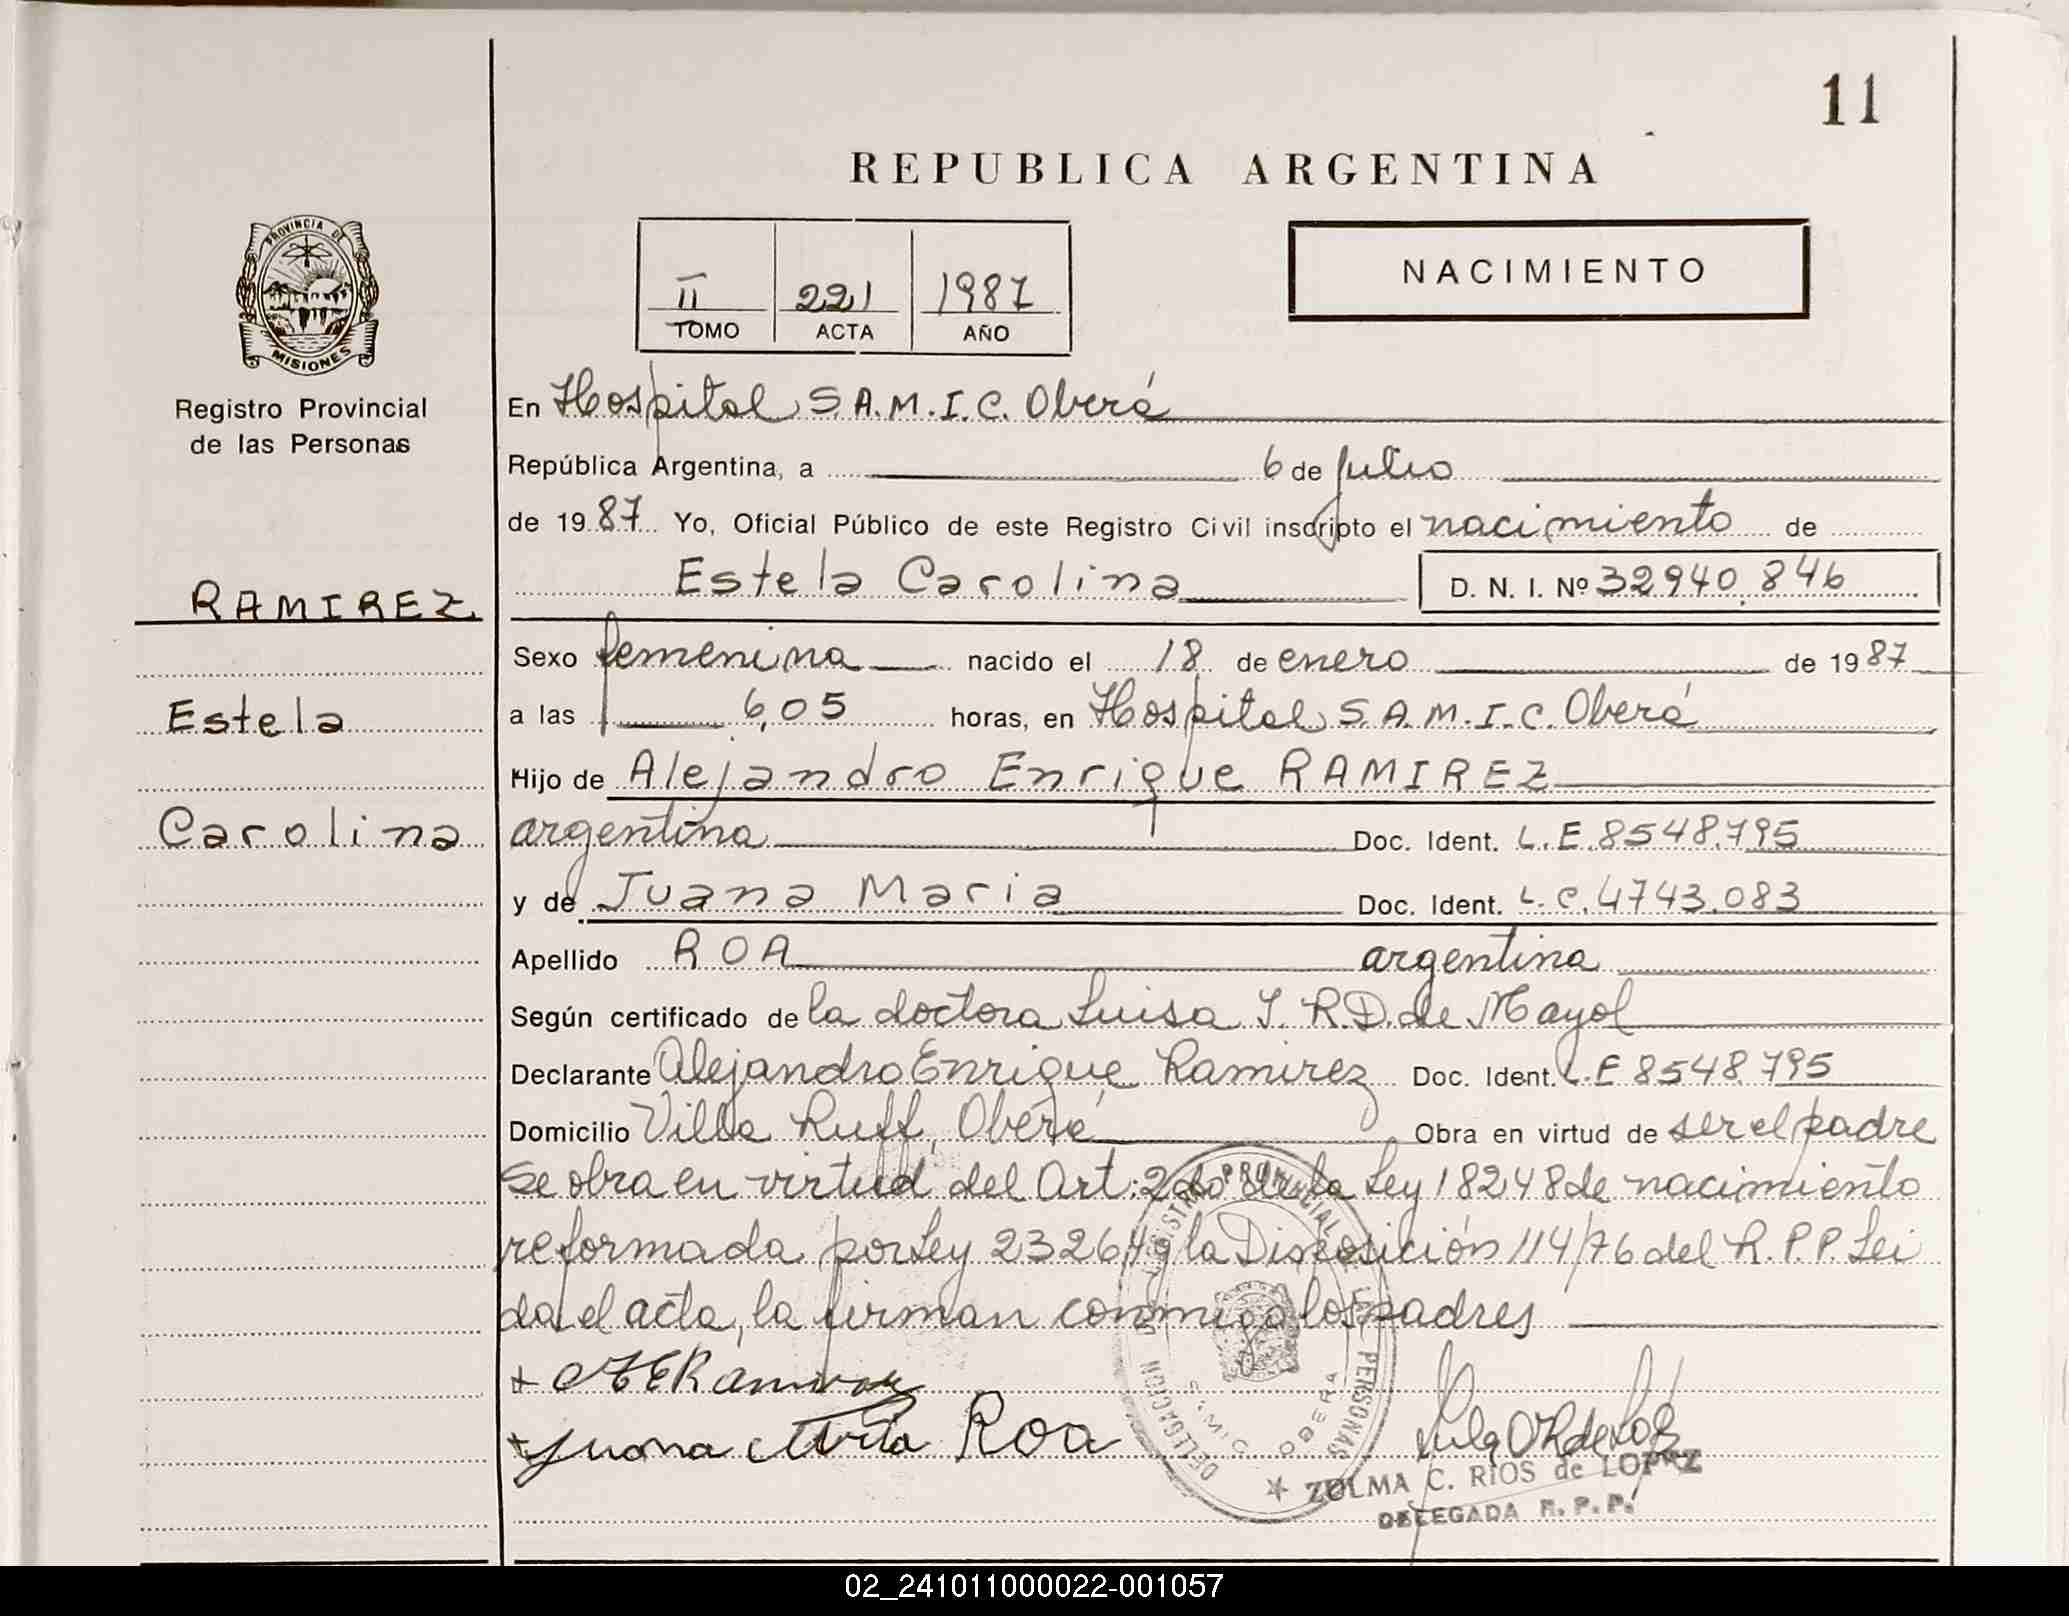 11
REPUBLICA ARGENTINA
PROVINCIA DE
MISIONES
Registro Provincial
de las Personas
II 221 1987
TOMO ACTA AÑO
NACIMIENTO
RAMIREZ
Estela
Carolina
En Hospital S.A.M.I.C. Oberá
República Argentina, a 6 de julio
de 1987 Yo, Oficial Público de este Registro Civil inscripto el nacimiento de
Estela Carolina D. N. I. Nº 32940.846
Sexo femenina nacido el 18 de enero de 1987
a las 6,05 horas, en Hospital S.A.M.I.C. Oberá
Hijo de Alejandro Enrique RAMIREZ
argentina Doc. Ident. L.E. 8548.795
y de Juana Maria Doc. Ident. L.C. 4743.083
Apellido ROA argentina
Según certificado de la doctora Luisa I. R.D. de Mayol
Declarante Alejandro Enrique Ramirez Doc. Ident. L.E 8548.795
Domicilio Villa Ruff, Oberá Obra en virtud de ser el padre
Se obra en virtud del Art: 2do de la Ley 18248 de nacimiento
reformada por Ley 23264 y la Disposición 114/76 del R.P.P. Lei
da el acta, la firman conmigo los padres
Juana Roa
DELEGACION REGISTRO PROVINCIAL DE LAS PERSONAS
SAMIC OBERA
ZULMA C. RIOS de LOPEZ
DELEGADA R. P. P.
02_241011000022-001057